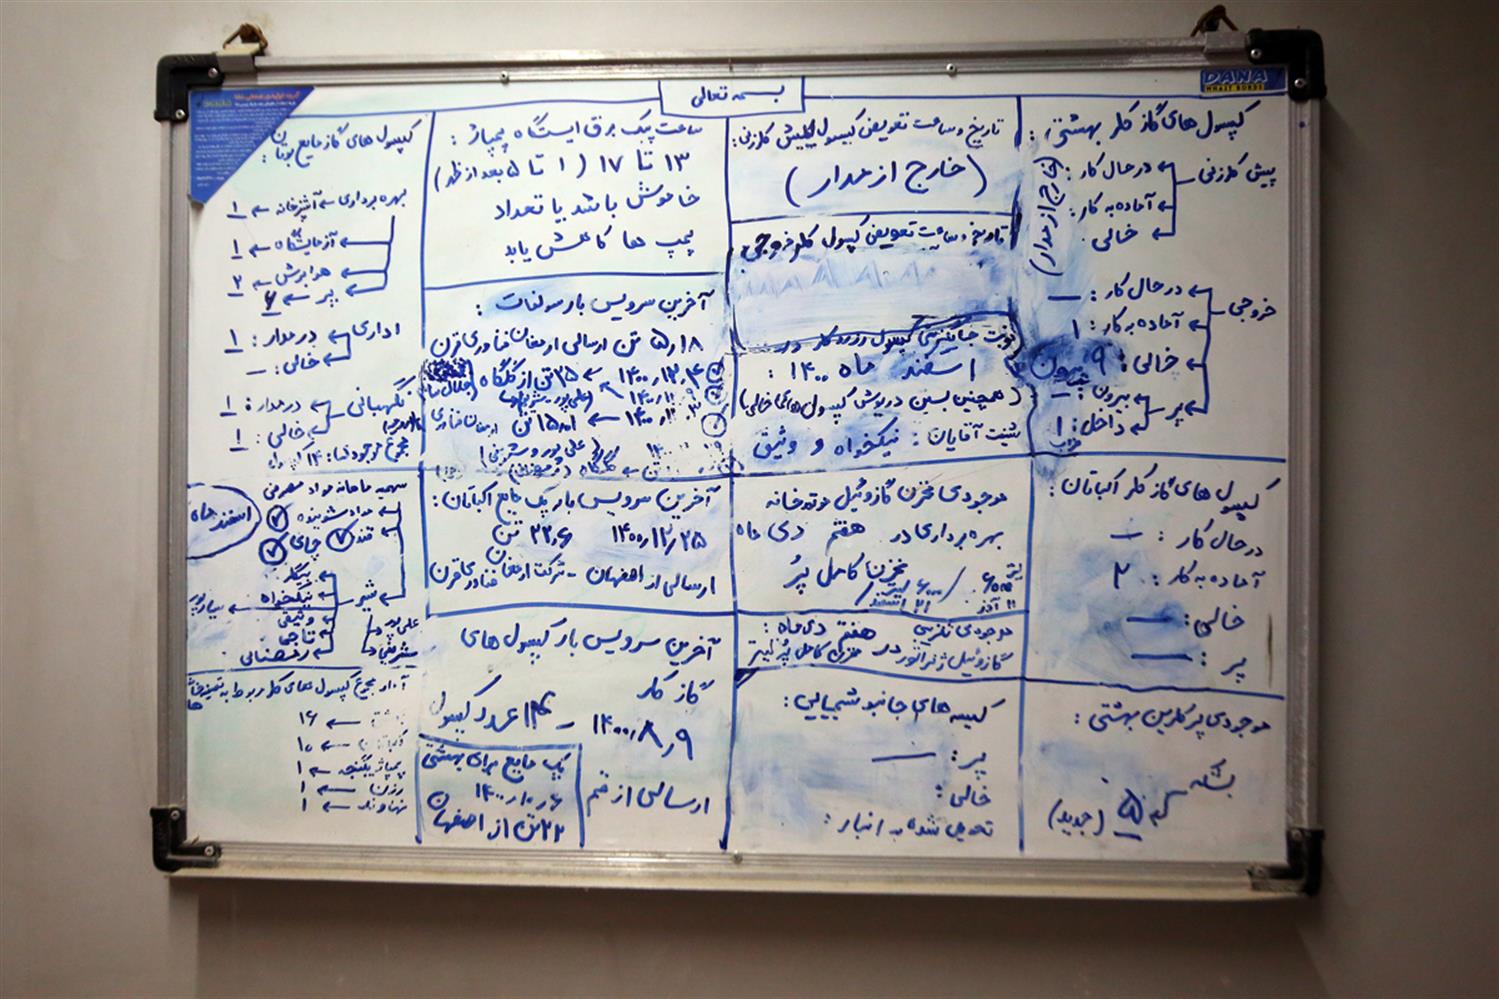 بسمه تعالی
DANA
WHAIT BORDS
کپسول های گاز کلر بهشتی:
پیش کلرزنی
در حال کار:
آماده به کار:
خالی
(خارج از مدار)
خروجی:
در حال کار: —
آماده به کار: ۱
خالی: ۹ بیرون
پر
بیرون: —
داخل: ۱
تاریخ و ساعت تعویض کپسول پیش کلرزنی:
(خارج از مدار)
تاریخ و ساعت تعویض کپسول کلر خروجی:
نوبت جایگزینی کپسول رزرو کلر در
اسفند ماه ۱۴۰۰:
(همچنین بستن درپوش کپسول های خالی)
شیفت آقایان: نیکخواه و وثیق
ساعت پیک برق ایستگاه پمپاژ:
۱۳ تا ۱۷ (۱ تا ۵ بعد از ظهر)
خاموش باشد یا تعداد
پمپ ها کاهش یابد
آخرین سرویس بار سولفات:
۵٫۱۸ تن ارسالی ارمغان فناوری قرن
کپسول های گاز مایع بوتان:
بهره برداری ← آشپزخانه ← ۱
آزمایشگاه ← ۱
هوابرش ← ۲
پر ← ۶
اداری
در مدار: ۱
خالی: —
نگهبانی
در مدار: ۱
خالی: ۱
کپسول های گاز کلر اکباتان:
در حال کار: —
آماده به کار: ۲
خالی: —
پر: —
موجودی مخزن گازوئیل موتورخانه
بهره برداری در هفتم دی ماه
مخزن کامل پُر
۶۰۰۰ لیتر
موجودی تقریبی
گازوئیل ژنراتور در هفتم دی ماه:
مخزن کامل پُر
آخرین سرویس بار پک مایع اکباتان:
۱۴۰۰/۱۲/۲۵ ۲۲٫۶ تن
ارسالی از اصفهان - شرکت ارمغان فناوری قرن
سهمیه ماهانه مواد مصرفی
اسفند ماه
مواد شوینده
قند چای
شیر
نیکخواه
وثیقی
علی پور
موجودی پرکلرین بهشتی:
بشکه
۵ (جدید)
کیسه های جاذب شیمیایی:
پر: —
خالی:
تحویل شده به انبار:
آخرین سرویس بار کپسول های
گاز کلر
۱۴۰۰٫۸٫۹ - ۱۴ عدد کپسول
ارسالی از قم
پک مایع برای بهشتی
۱۴۰۰٫۱۰٫۶
۲۲ تن از اصفهان
آمار مجموع کپسول های کلر مربوط به تصفیه خانه ها
بهشتی ← ۱۶
اکباتان ← ۱۰
← ۱
رزن ← ۱
نهاوند ← ۱